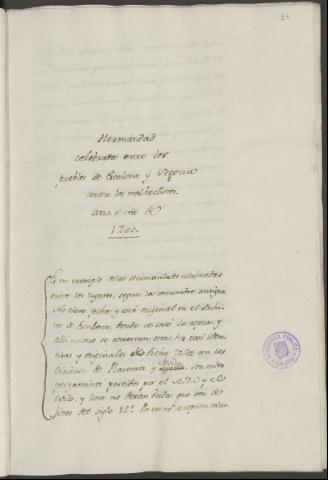 34
Hermandad
celebrada entre los
pueblos de Escalona y Segovia
contra los malhechores.
acia el año de
1200.
Es un exemplo de las Hermandades celebradas
entre los lugares, segun la costumbre antigua.
No tiene fecha y está original en el Archi-
vo de Escalona, donde se sacó la copia; y
alli mismo se conservan otras tres con iden-
ticas y originales de dicha Villa con las
Ciudades de Plasencia y Avila. son todos
pergaminos partidos por el A.B.C. y el
estilo, y letra no dexan duda que son de
fines del siglo 12.º
BIBLIOTECA PUBLICA
TOLEDO